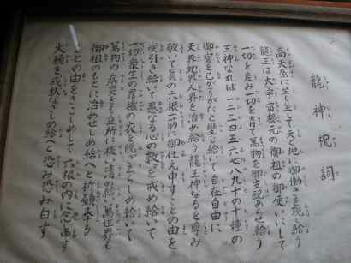 龍神祝詞
高天原に坐し坐して天と地に御働きを現し給う
龍王は大宇宙根元の御祖の御使いにして
一切を産み一切を育て萬物を御支配あらせ給う
王神なれば一二三四五六七八九十の十種の
御寶を己がすがたと変じ給いて自在自由に
天界地界人界を治め給う龍王神なるを尊み
敬いて真の六根一筋に御仕え申すことの由を
受引き給いて愚なる心の数々を戒め給いて
一切衆生の罪穢の衣を脱ぎさらしめ給いて
萬物の病災をも立所に祓い清め給い萬世界も
御祖のもとに治めせしめ給へと祈願奉る
ことの由をきこしめして六根の内に念じ申す
大願を成就なさしめ給へと恐み恐み白す